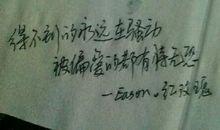 得不到的永远在骚动
被偏爱的都有恃无恐
—Eason·红玫瑰